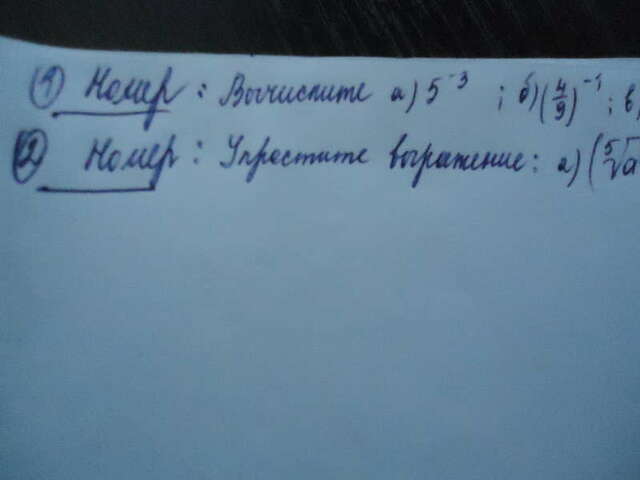 ① Номер : Вычислите а) 5⁻³ ; б) (4/9)⁻¹ ; в)
② Номер : Упростите выражение : а) (⁵√a